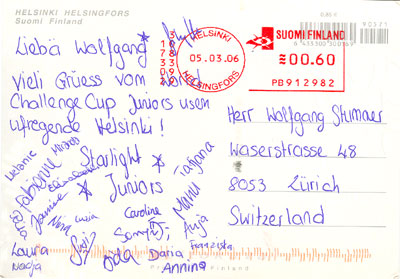 HELSINKI HELSINGFORS
Suomi Finland
Liebä Wolfgang
Vieli Grüess vom World
Challenge Cup Juniors usem
ufregende Helsinki!
Starlight
Juniors
Melanie
Fabienne
Janine
Nina
Laura
Nadja
Caroline
Manu
Tatjana
Anja
Oda
Daria
Franziska
Annina
HELSINKI
05.03.06
HELSINGFORS
SUOMI FINLAND
00.60
PB912982
0,60 €
90521
Herr Wolfgang Sturmaier
Waserstrasse 48
8053 Zürich
Switzerland
Finland